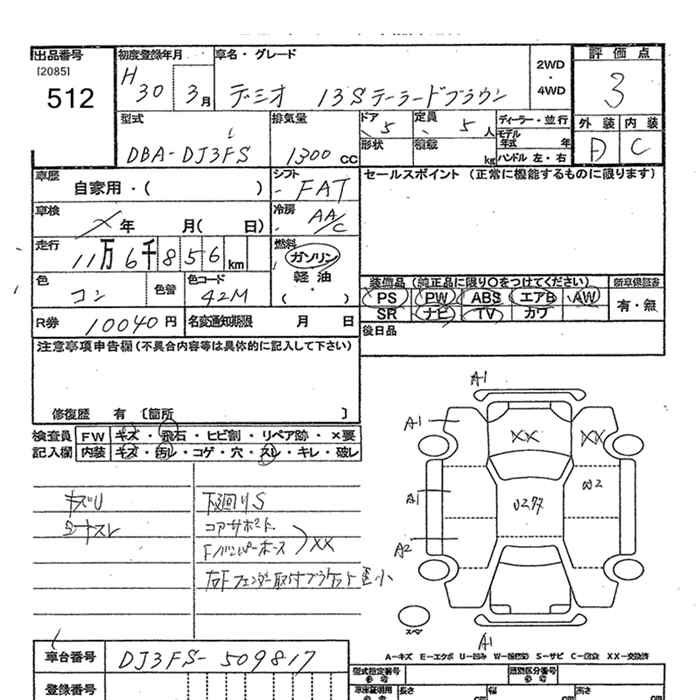 出品番号 初度登録年月 車名・グレード 2WD・4WD 評価点
[2085]
512
H30 3月 デミオ 13Sテーラードブラウン 3
型式 排気量 ドア 定員 ディーラー・並行 外装 内装
DBA-DJ3FS 1300cc 5 5人 モデル年式 年 D C
形状 積載 kg ハンドル 左・右
車歴 シフト セールスポイント (正常に機能するものに限ります)
自家用・( ) FAT
車検 冷房
年 月( 日) AA/C
走行 燃料
11万6千856km ガソリン
軽油
・( )
色 色替 色コード 装備品 (純正品に限り○をつけてください) 新車保証書
コン 42M PS PW ABS エアB AW 有・無
SR ナビ TV カワ
R券 10040円 名変通知期限 月 日 後日品
注意事項申告欄(不具合内容等は具体的に記入して下さい)
修復歴 有 [箇所 ]
検査員 FW キズ・飛石・ヒビ割・リペア跡・×要
記入欄 内装 キズ・汚レ・コゲ・穴・スレ・キレ・破レ
キズU 下廻りS
コアサポート
Fバンパーホース XX
右Fフェンダー取付ブラケット歪小
A1
A1 XX XX
A1 W2
A2
スペア A1
A-キズ E-エクボ U-凹み W-補修跡 S-サビ C-腐食 XX-交換済
車台番号 DJ3FS-509817
登録番号
型式指定番号 類別区分番号
長さ 幅 高さ